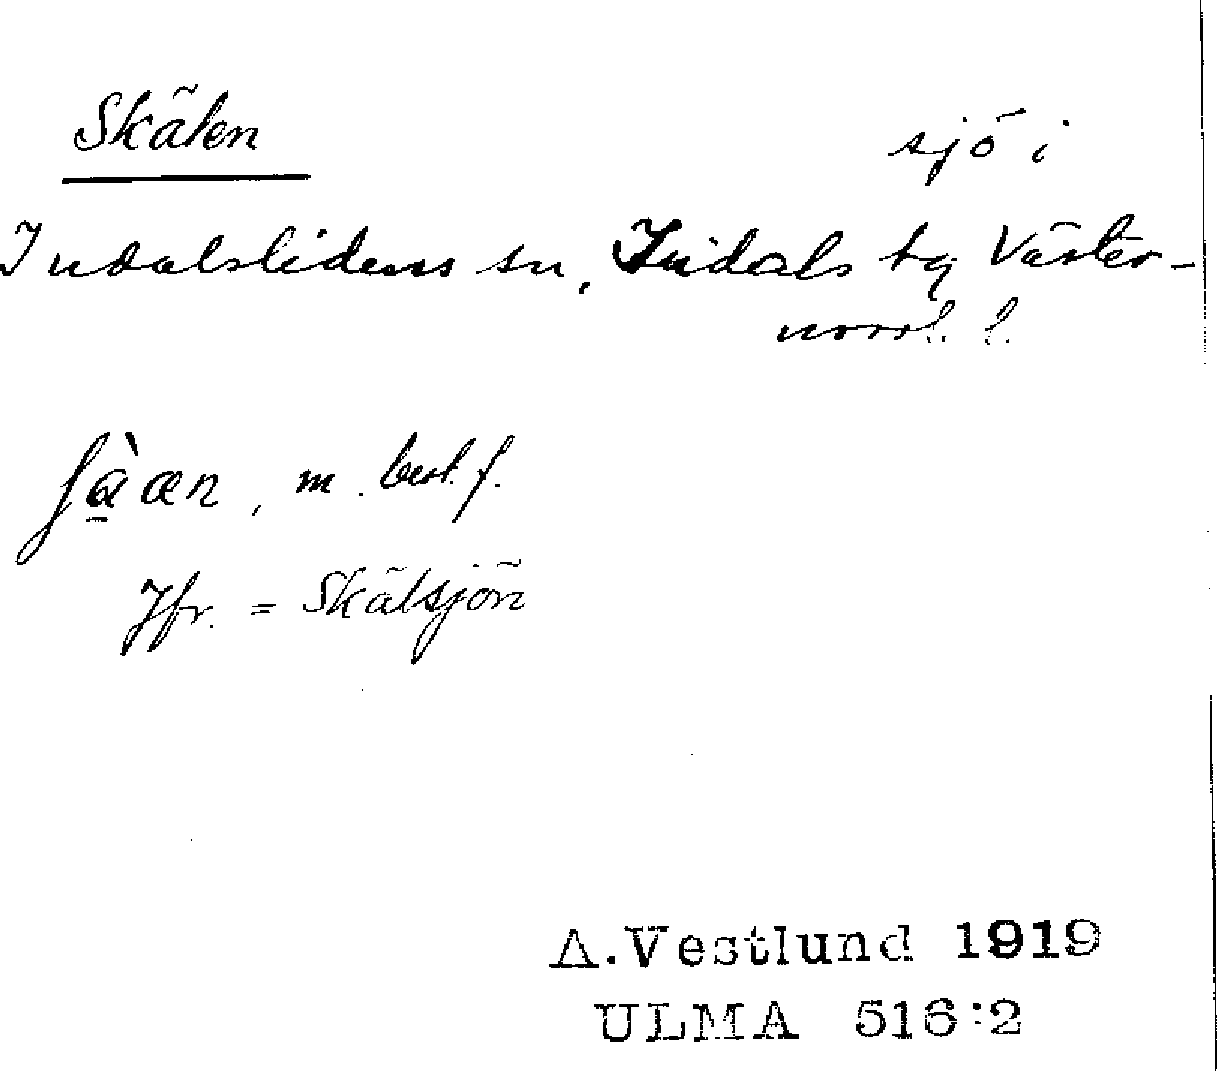 Skälen
sjö i
Indalslidens sn, Indals by Väster-
norrl. l.
m. best. f.
Jfr. = Skälsjön
A.Vestlund 1919
ULMA 516:2